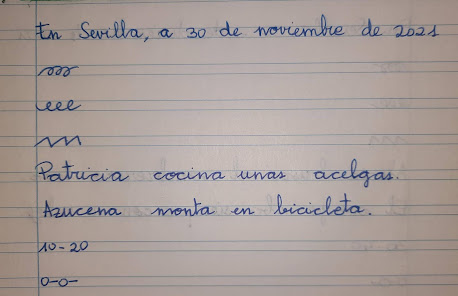 En Sevilla, a 30 de noviembre de 2021
eee
Patricia cocina unas acelgas.
Azucena monta en bicicleta.
10-20
0-0-